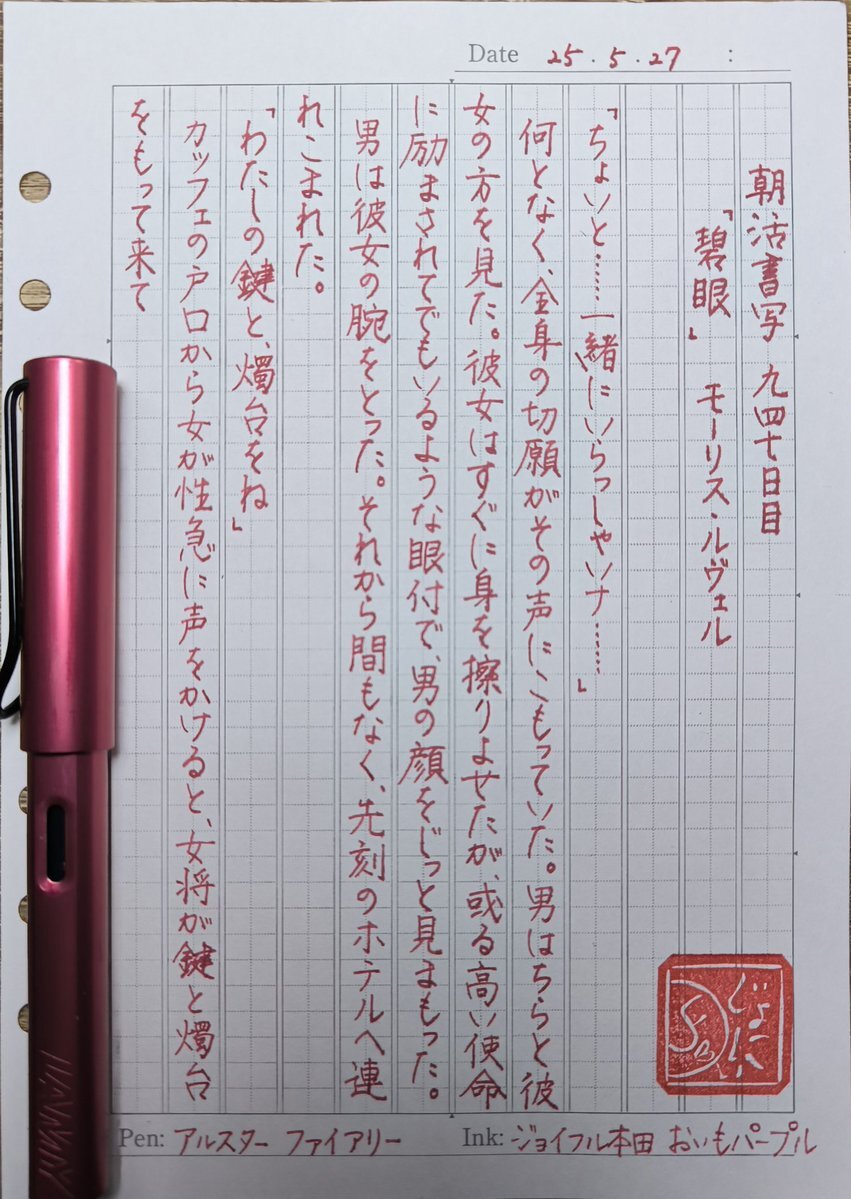 Date 25.5.27 :
朝活書写 九四十日目
「碧眼」 モーリス・ルヴェル
「ちょいと……一緒にいらっしゃいナ……」
何となく、全身の切願がその声にこもっていた。男はちらと彼
女の方を見た。彼女はすぐに身を擦りよせたが、或る高い使命
に励まされてでもいるような眼付で、男の顔をじっと見まもった。
男は彼女の腕をとった。それから間もなく、先刻のホテルへ連
れこまれた。
「わたしの鍵と、燭台をね」
カッフェの戸口から女が性急に声をかけると、女将が鍵と燭台
をもって来て
Pen: アルスター ファイアリー
Ink: ジョイフル本田 おいもパープル
LAMY